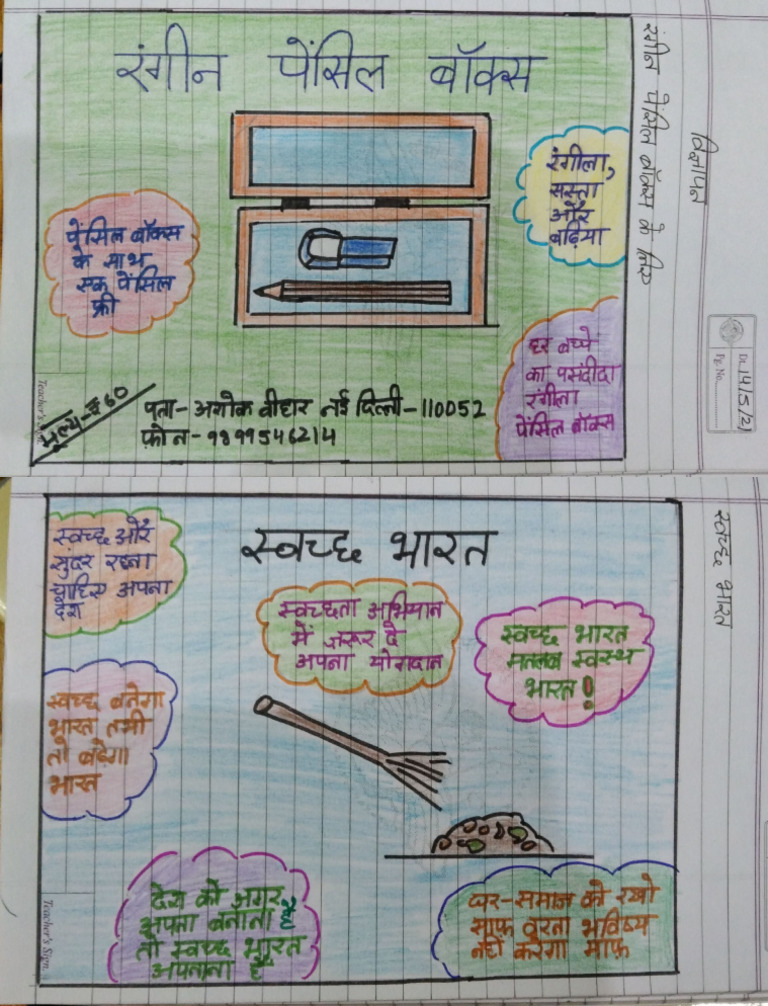 विज्ञापन
रंगीन पेंसिल बॉक्स के लिए
Dt. 14/5/21
Pg. No.
रंगीन पेंसिल बॉक्स
रंगीला,
सस्ता
और
बढ़िया
पेंसिल बॉक्स
के साथ
एक पेंसिल
फ्री
हर बच्चे
का पसंदीदा
रंगीला
पेंसिल बॉक्स
मूल्य-₹60
पता- अशोक वीहार नई दिल्ली-110052
फ़ोन-9899546214
Teacher's
स्वच्छ भारत
स्वच्छ भारत
स्वच्छ और
सुंदर रहना
चाहिए अपना
देश
स्वच्छता अभियान
में ज़रूर दे
अपना योगदान
स्वच्छ भारत
मतलब स्वस्थ
भारत!
स्वच्छ बनेगा
भारत तभी
तो बढ़ेगा
भारत
देश को अगर
अपना बनाना है
तो स्वच्छ भारत
अपनाना है
घर-समाज को रखो
साफ़ वरना भविष्य
नहीं करेगा माफ़
Teacher's Sign.